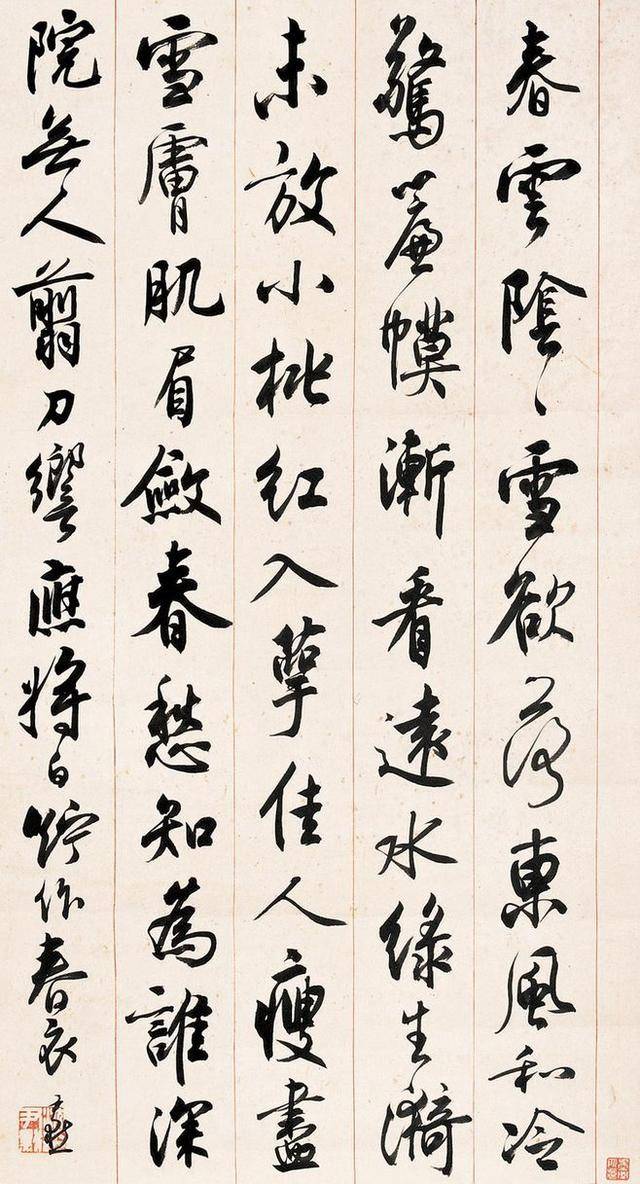 春雲陰〻雪欲落東風和冷
驚簾幙漸看遠水綠生漪
未放小桃紅入萼佳人瘦盡
雪膚肌眉斂春愁知為誰深
院無人翦刀響應將白紵作春衣
尹默